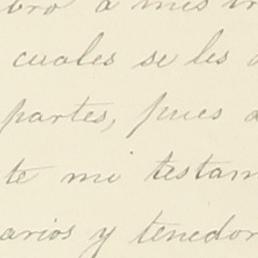 bro a mis
cuales se les
partes, pues
te mi testam
arios y tenedor